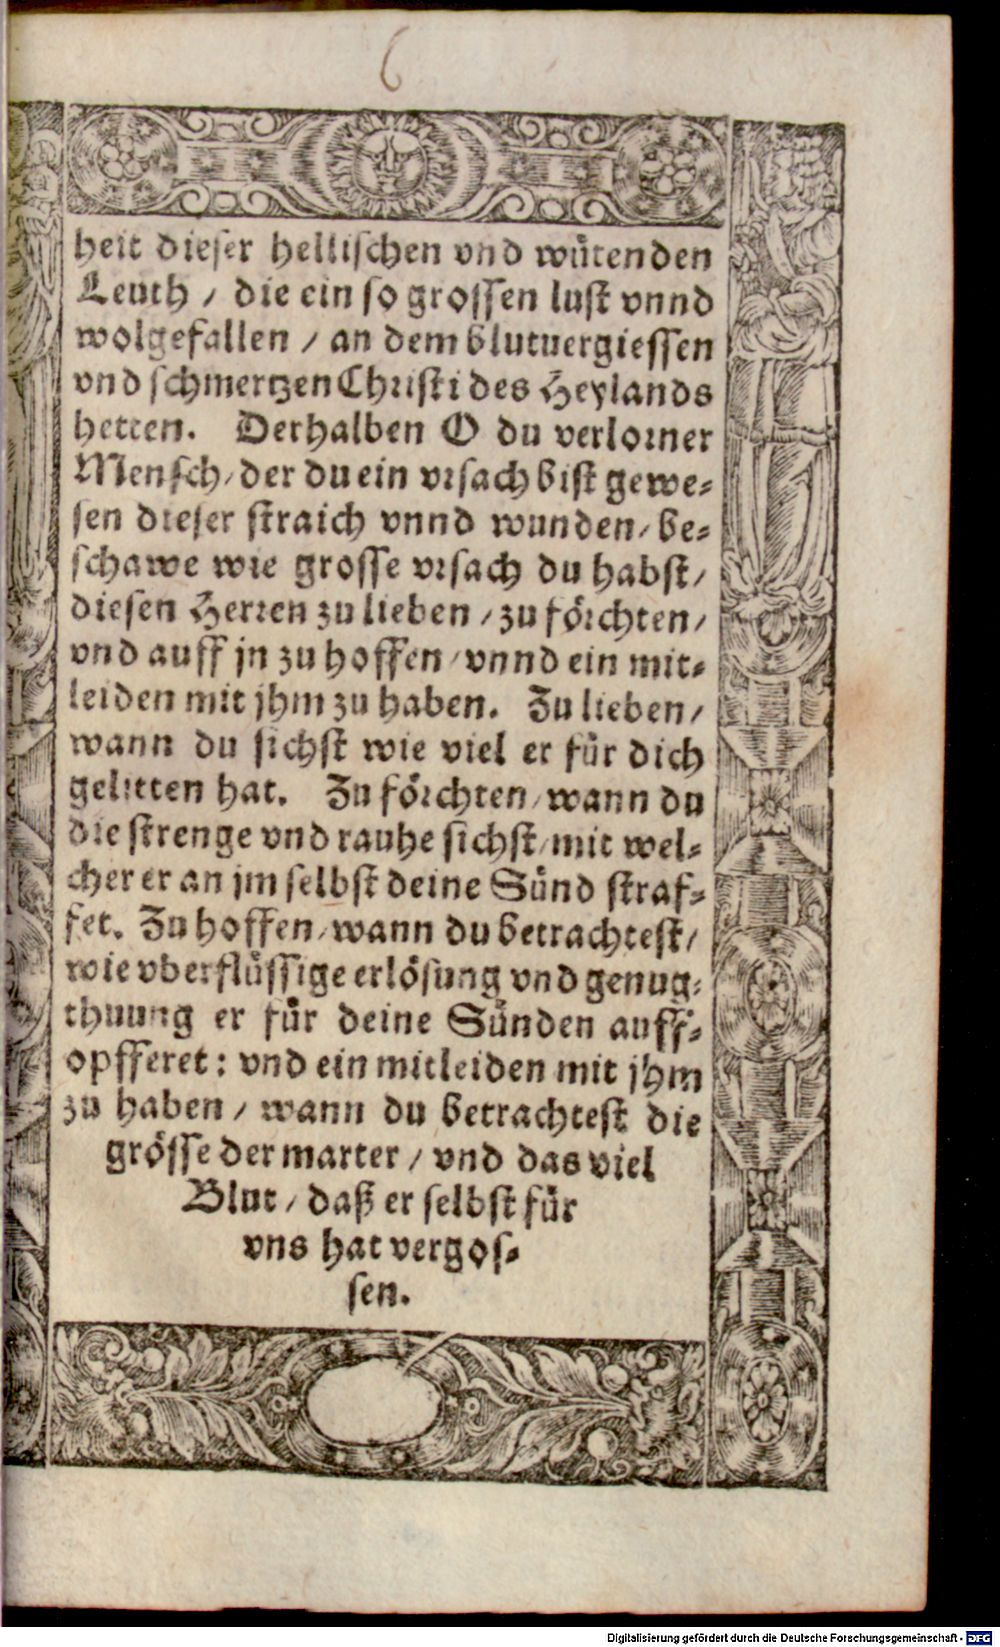 6
heit dieser hellischen vnd wütenden
Leuth / die ein so grossen lust vnnd
wolgefallen / an dem blutuergiessen
vnd schmertzen Christi des Heylands
hetten. Derhalben O du verlorner
Mensch / der du ein vrsach bist gewe⸗
sen dieser straich vnnd wunden / be⸗
schawe wie grosse vrsach du habst /
diesen Herren zu lieben / zu förchten /
vnd auff jn zu hoffen / vnnd ein mit⸗
leiden mit jhm zu haben. Zu lieben /
wann du sichst wie viel er für dich
gelitten hat. Zu förchten / wann du
die strenge vnd rauhe sichst / mit wel⸗
cher er an jm selbst deine Sünd straf⸗
fet. Zu hoffen / wann du betrachtest /
wie vberflüssige erlösung vnd genug⸗
thuung er für deine Sünden auff⸗
opfferet : vnd ein mitleiden mit jhm
zu haben / wann du betrachtest die
grösse der marter / vnd das viel
Blut / daß er selbst für
vns hat vergos⸗
sen.
Digitalisierung gefördert durch die Deutsche Forschungsgemeinschaft - DFG